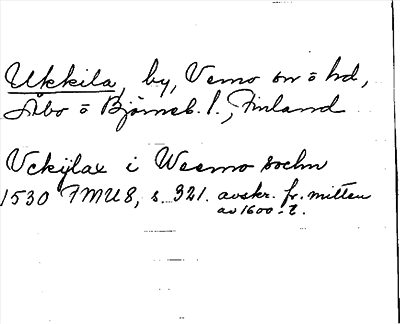 Ukkila, by, Vemo sn o hd,
Åbo o Björneb. l., Finland
Vckÿlax i Weemo sochn
1530 FMU 8, s. 321. avskr. fr. mitten
av 1600-t.